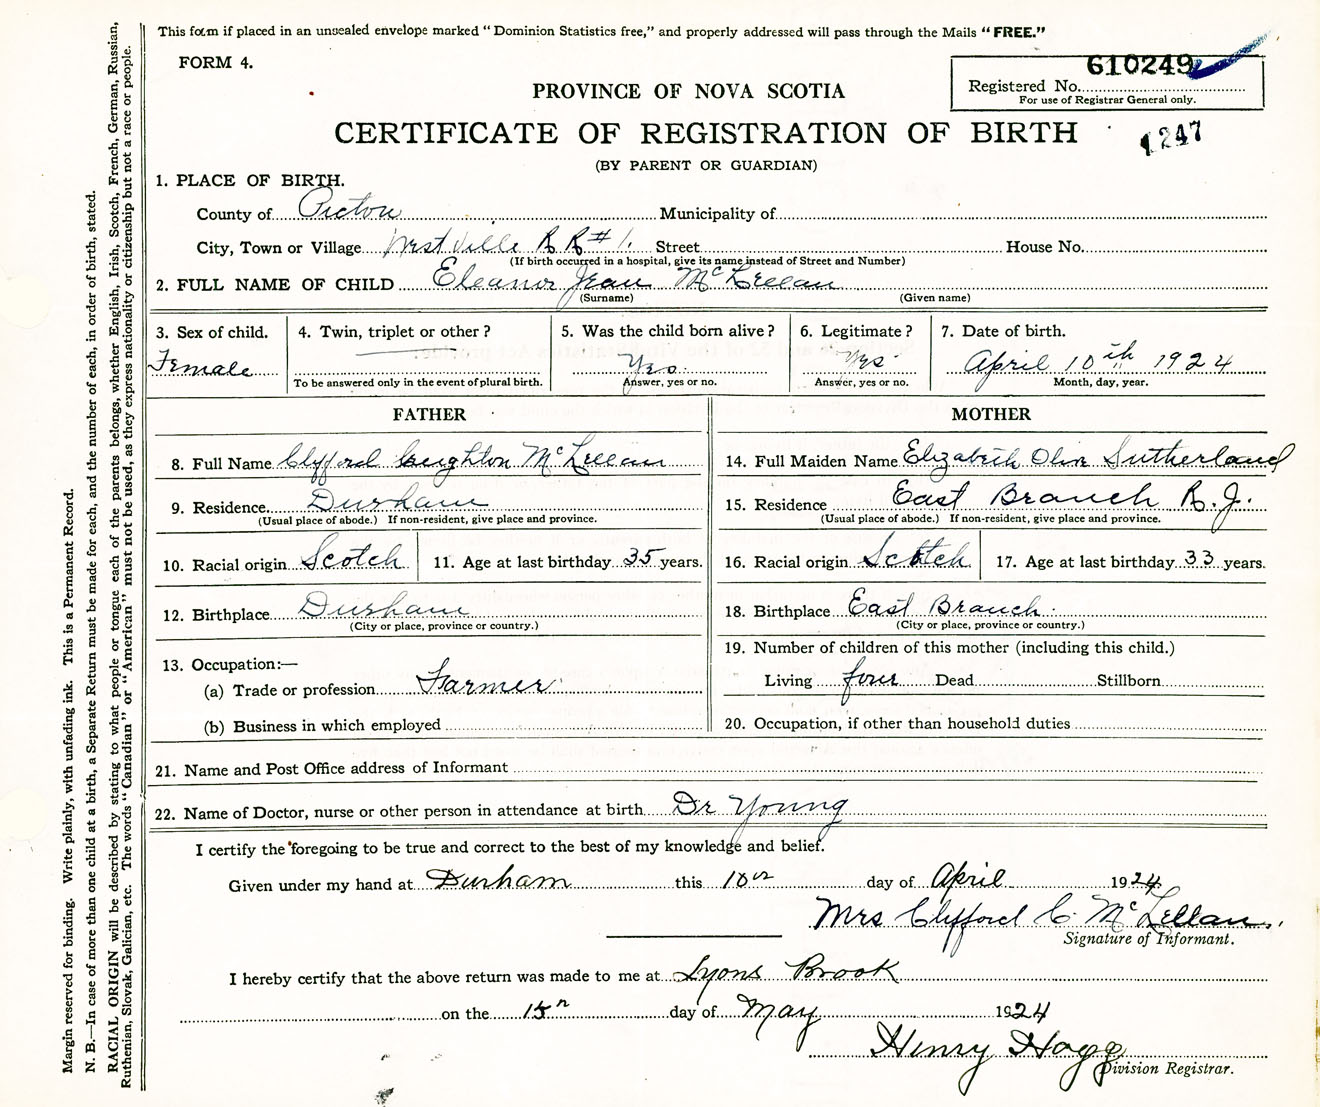 This form if placed in an unsealed envelope marked "Dominion Statistics free," and properly addressed will pass through the Mails "FREE."
FORM 4.
610249
Registered No.
For use of Registrar General only.
1247
PROVINCE OF NOVA SCOTIA
CERTIFICATE OF REGISTRATION OF BIRTH
(BY PARENT OR GUARDIAN)
1. PLACE OF BIRTH.
County of Pictou Municipality of
City, Town or Village Westville R R #1. Street House No.
(If birth occurred in a hospital, give its name instead of Street and Number)
2. FULL NAME OF CHILD Eleanor Jean McLellan
(Surname) (Given name)
3. Sex of child. 4. Twin, triplet or other? 5. Was the child born alive? 6. Legitimate? 7. Date of birth.
Female Yes. Yes April 10th 1924
To be answered only in the event of plural birth. Answer, yes or no. Answer, yes or no. Month, day, year.
FATHER MOTHER
8. Full Name Clifford Creighton McLellan 14. Full Maiden Name Elizabeth Olive Sutherland
9. Residence Durham 15. Residence East Branch R.J.
(Usual place of abode.) If non-resident, give place and province. (Usual place of abode.) If non-resident, give place and province.
10. Racial origin Scotch 11. Age at last birthday 35 years. 16. Racial origin Scotch 17. Age at last birthday 33 years.
12. Birthplace Durham 18. Birthplace East Branch.
(City or place, province or country.) (City or place, province or country.)
13. Occupation:— 19. Number of children of this mother (including this child.)
(a) Trade or profession Farmer Living four Dead Stillborn
(b) Business in which employed 20. Occupation, if other than household duties
21. Name and Post Office address of Informant
22. Name of Doctor, nurse or other person in attendance at birth Dr Young
I certify the foregoing to be true and correct to the best of my knowledge and belief.
Given under my hand at Durham this 10th day of April 1924
Mrs Clifford C. McLellan.
Signature of Informant.
I hereby certify that the above return was made to me at Lyons Brook
on the 15th day of May 1924
Henry Hogg
Division Registrar.
Margin reserved for binding. Write plainly, with unfading ink. This is a Permanent Record.
N. B.—In case of more than one child at a birth, a Separate Return must be made for each, and the number of each, in order of birth, stated.
RACIAL ORIGIN will be described by stating to what people or tongue each of the parents belongs, whether English, Irish, Scotch, French, German, Russian,
Ruthenian, Slovak, Galician, etc. The words "Canadian" or "American" must not be used, as they express nationality or citizenship but not a race or people.